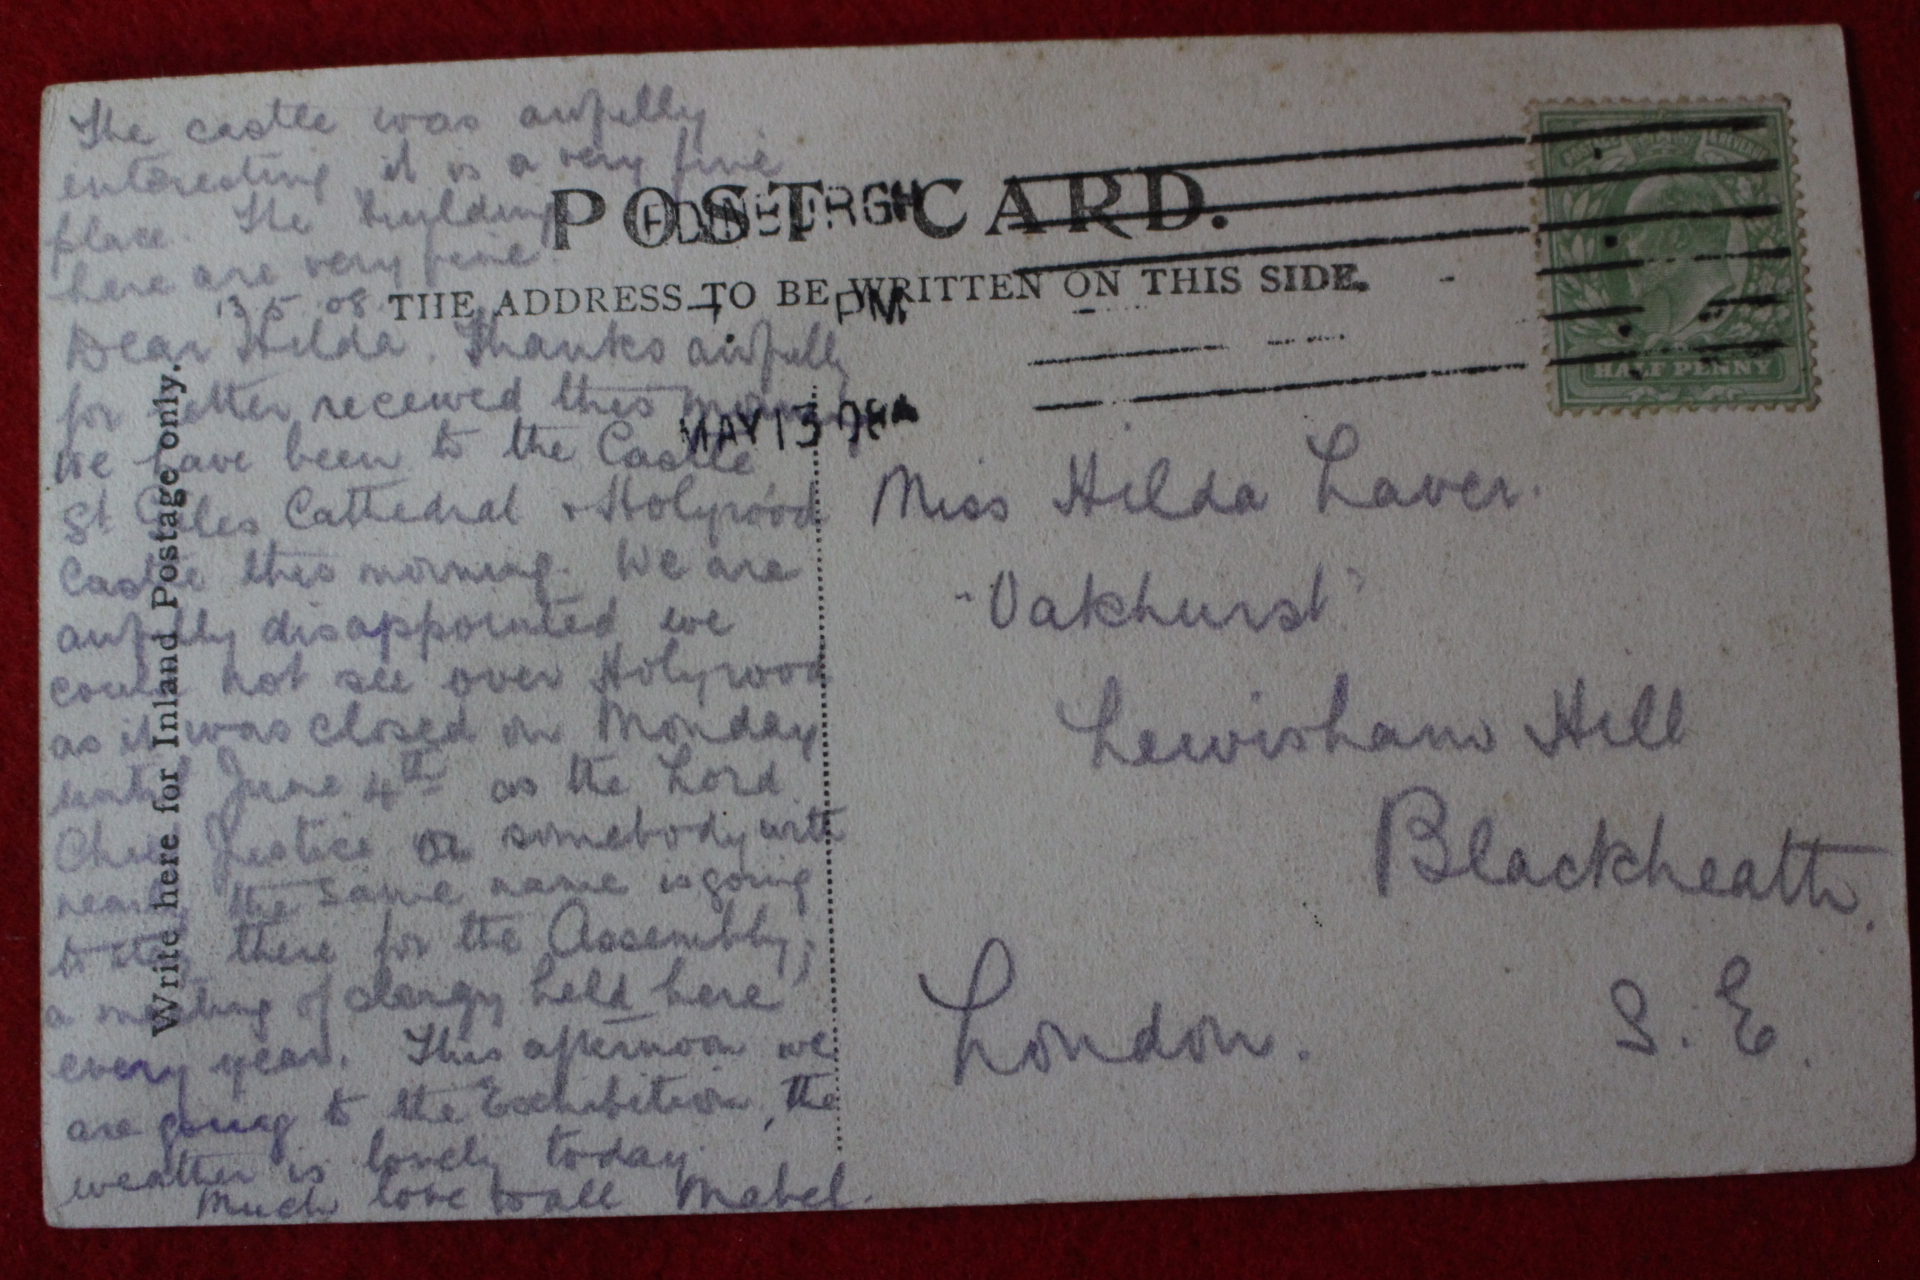 The castle was awfully
interesting it is a very fine
place. The buildings
here are very fine
POST CARD.
EDINBURGH
THE ADDRESS TO BE WRITTEN ON THIS SIDE.
PM
MAY 13 08
HALF PENNY
Write here for Inland Postage only.
13 5 08
Dear Hilda. Thanks awfully
for letter received this morning
We have been to the Castle,
St Giles Cattedral + Holyrood
Castle this morning. We are
awfully disappointed we
could not see over Holyrood
as it was closed on Monday
until June 4th as the Lord
Chief Justice or somebody with
nearly the same name is going
to stay there for the Assembly,
a meeting of clergy held here
every year. This afternoon we
are going to the Exhibition, the
weather is lovely today.
Much love to all Mabel.
Miss Hilda Laver.
"Oakhurst"
Lewisham Hill
Blackheath.
London. S. E.